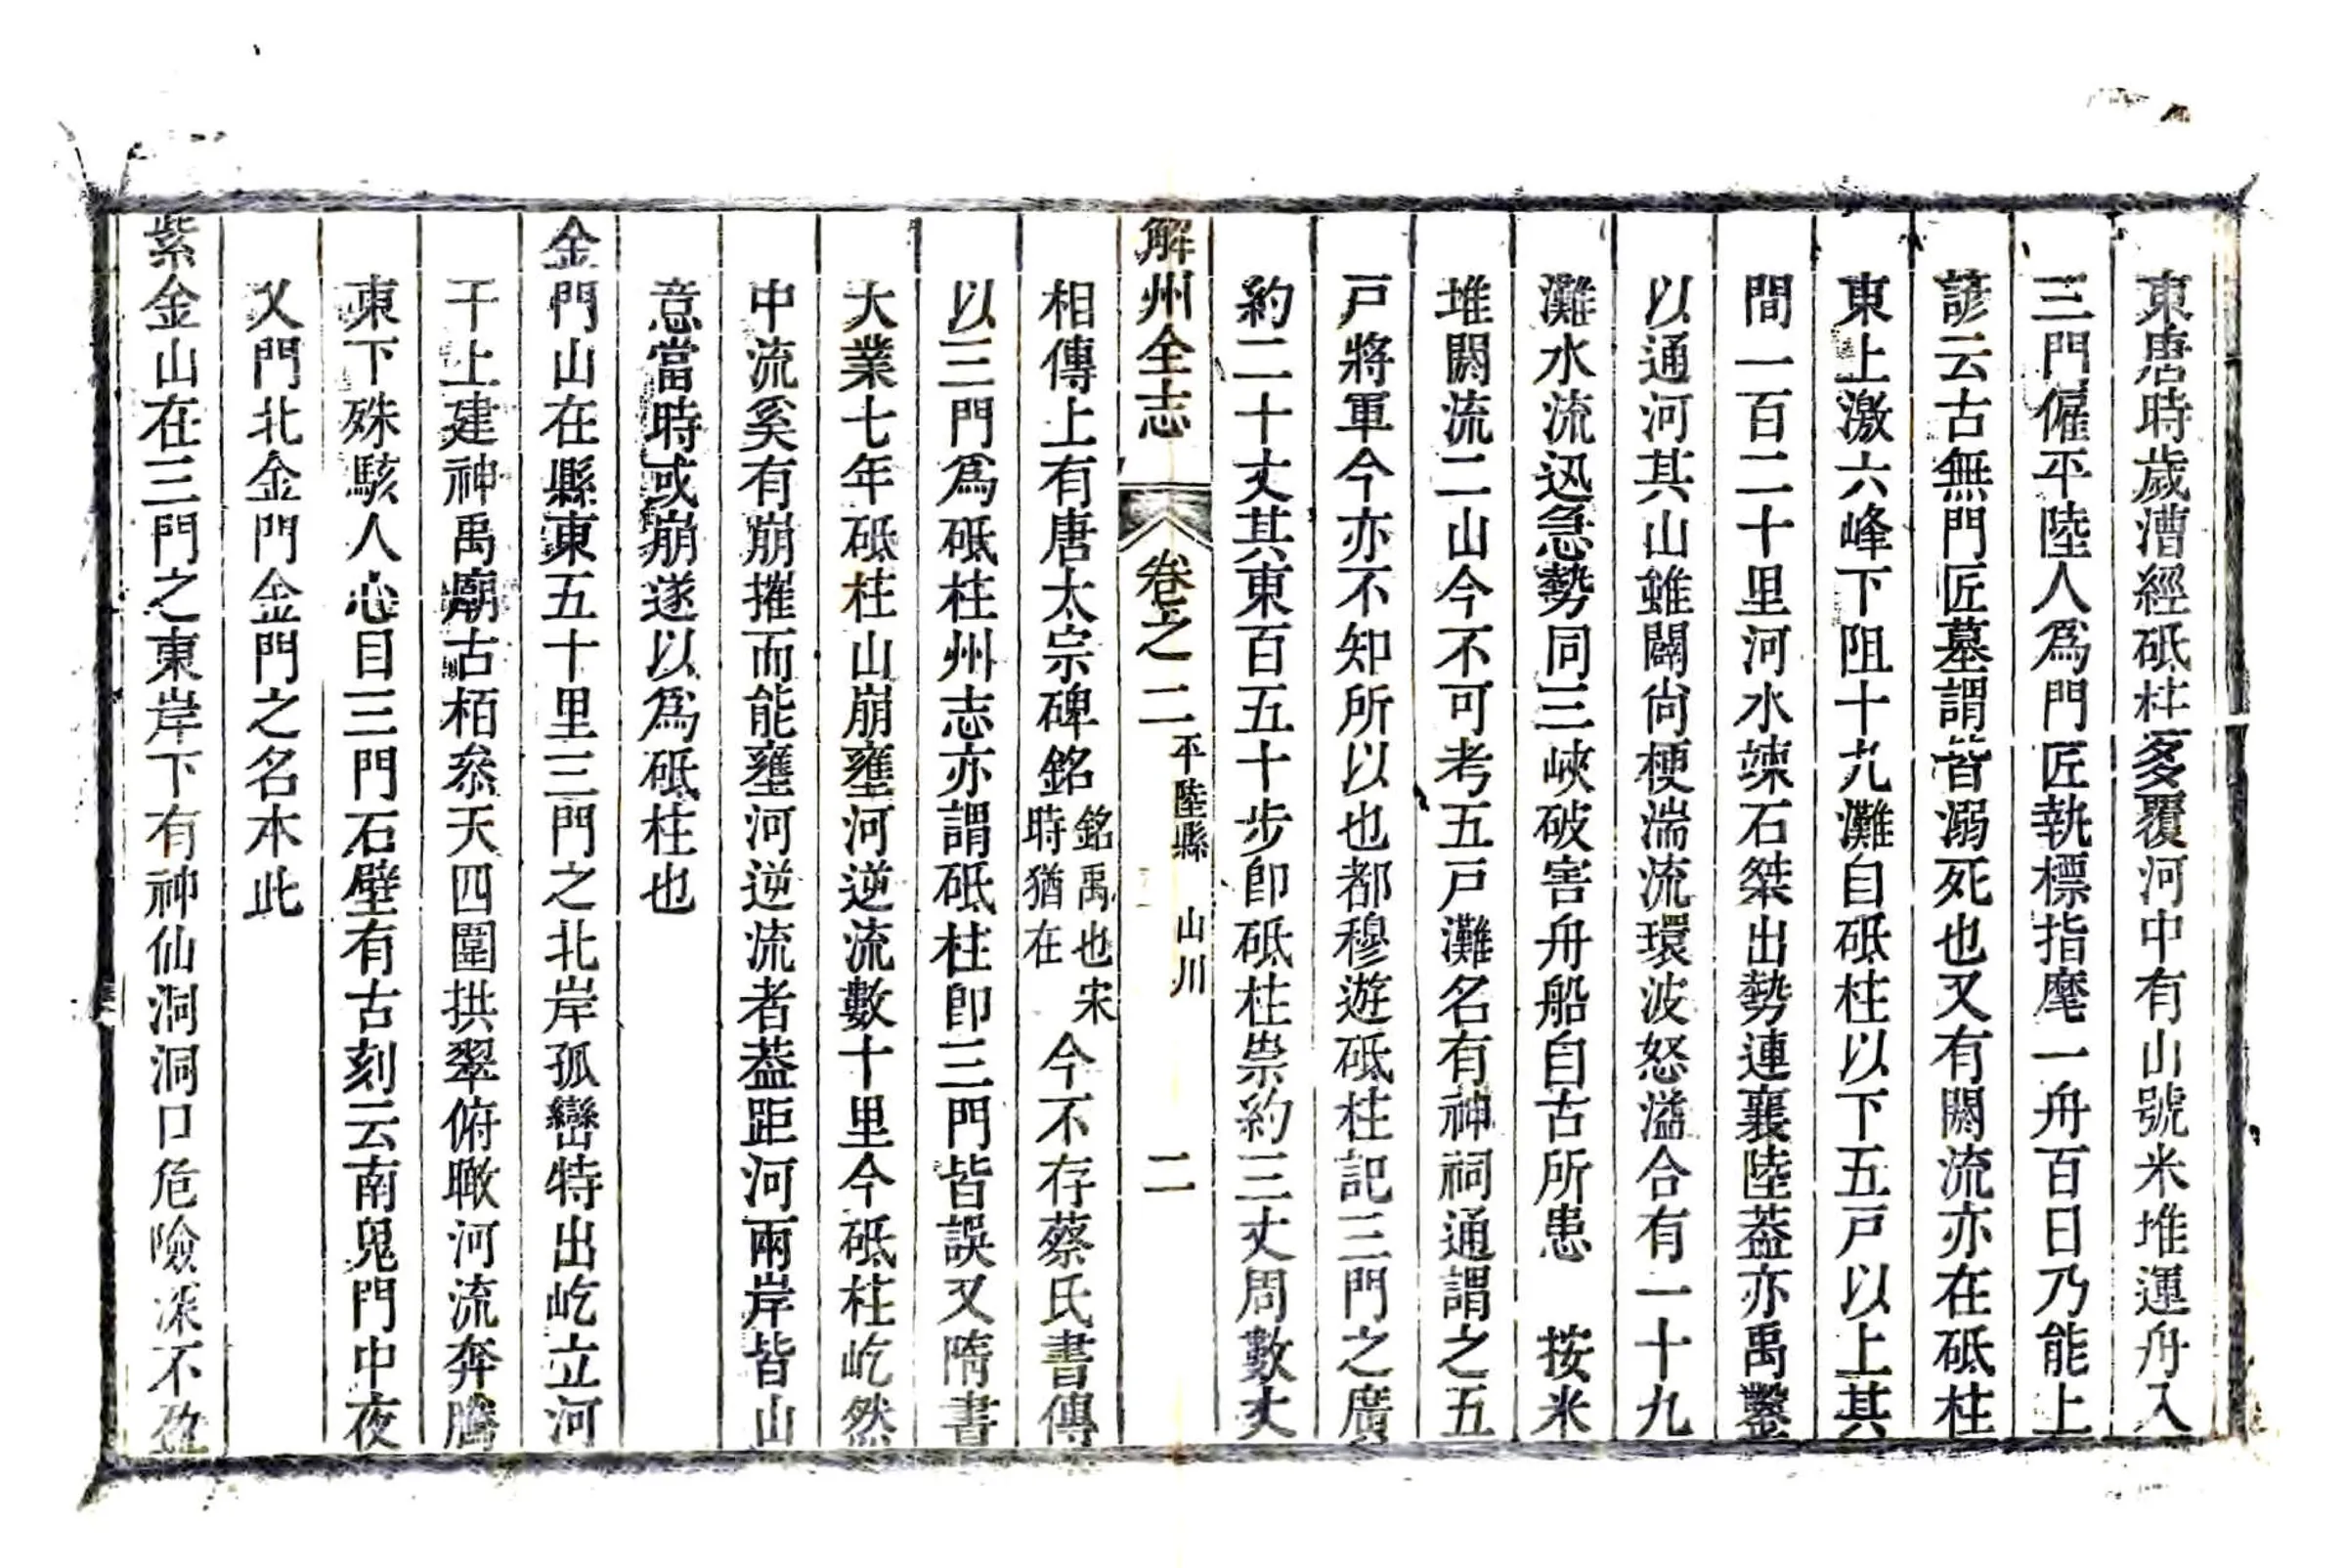 東唐時歲漕經砥柱多覆河中有山號米堆運舟入
三門僱平陸人爲門匠執標指麾一舟百日乃能上
諺云古無門匠墓謂皆溺死也又有閼流亦在砥柱
東上激六峰下阻十九灘自砥柱以下五戸以上其
間一百二十里河水竦石桀出勢連襄陸葢亦禹鑿
以通河其山雖闢尙梗湍流環波怒溢合有一十九
灘水流迅急勢同三峽破害舟船自古所患 按米
堆閼流二山今不可考五戸灘名有神祠通謂之五
戸將軍今亦不知所以也都穆遊砥柱記三門之廣
約二十丈其東百五十步卽砥柱崇約三丈周數丈
解州全志 卷之二 平陸縣 山川 二
相傳上有唐太宗碑銘 銘禹也宋
時猶在 今不存蔡氏書傳
以三門爲砥柱州志亦謂砥柱卽三門皆誤又隋書
大業七年砥柱山崩壅河逆流數十里今砥柱屹然
中流奚有崩摧而能壅河逆流者葢距河兩岸皆山
意當時或崩遂以爲砥柱也
金門山在縣東五十里三門之北岸孤巒特出屹立河
干上建神禹廟古栢叅天四圍拱翠俯瞰河流奔騰
東下殊駭人心目三門石壁有古刻云南鬼門中夜
叉門北金門金門之名本此
紫金山在三門之東岸下有神仙洞洞口危險深不盈